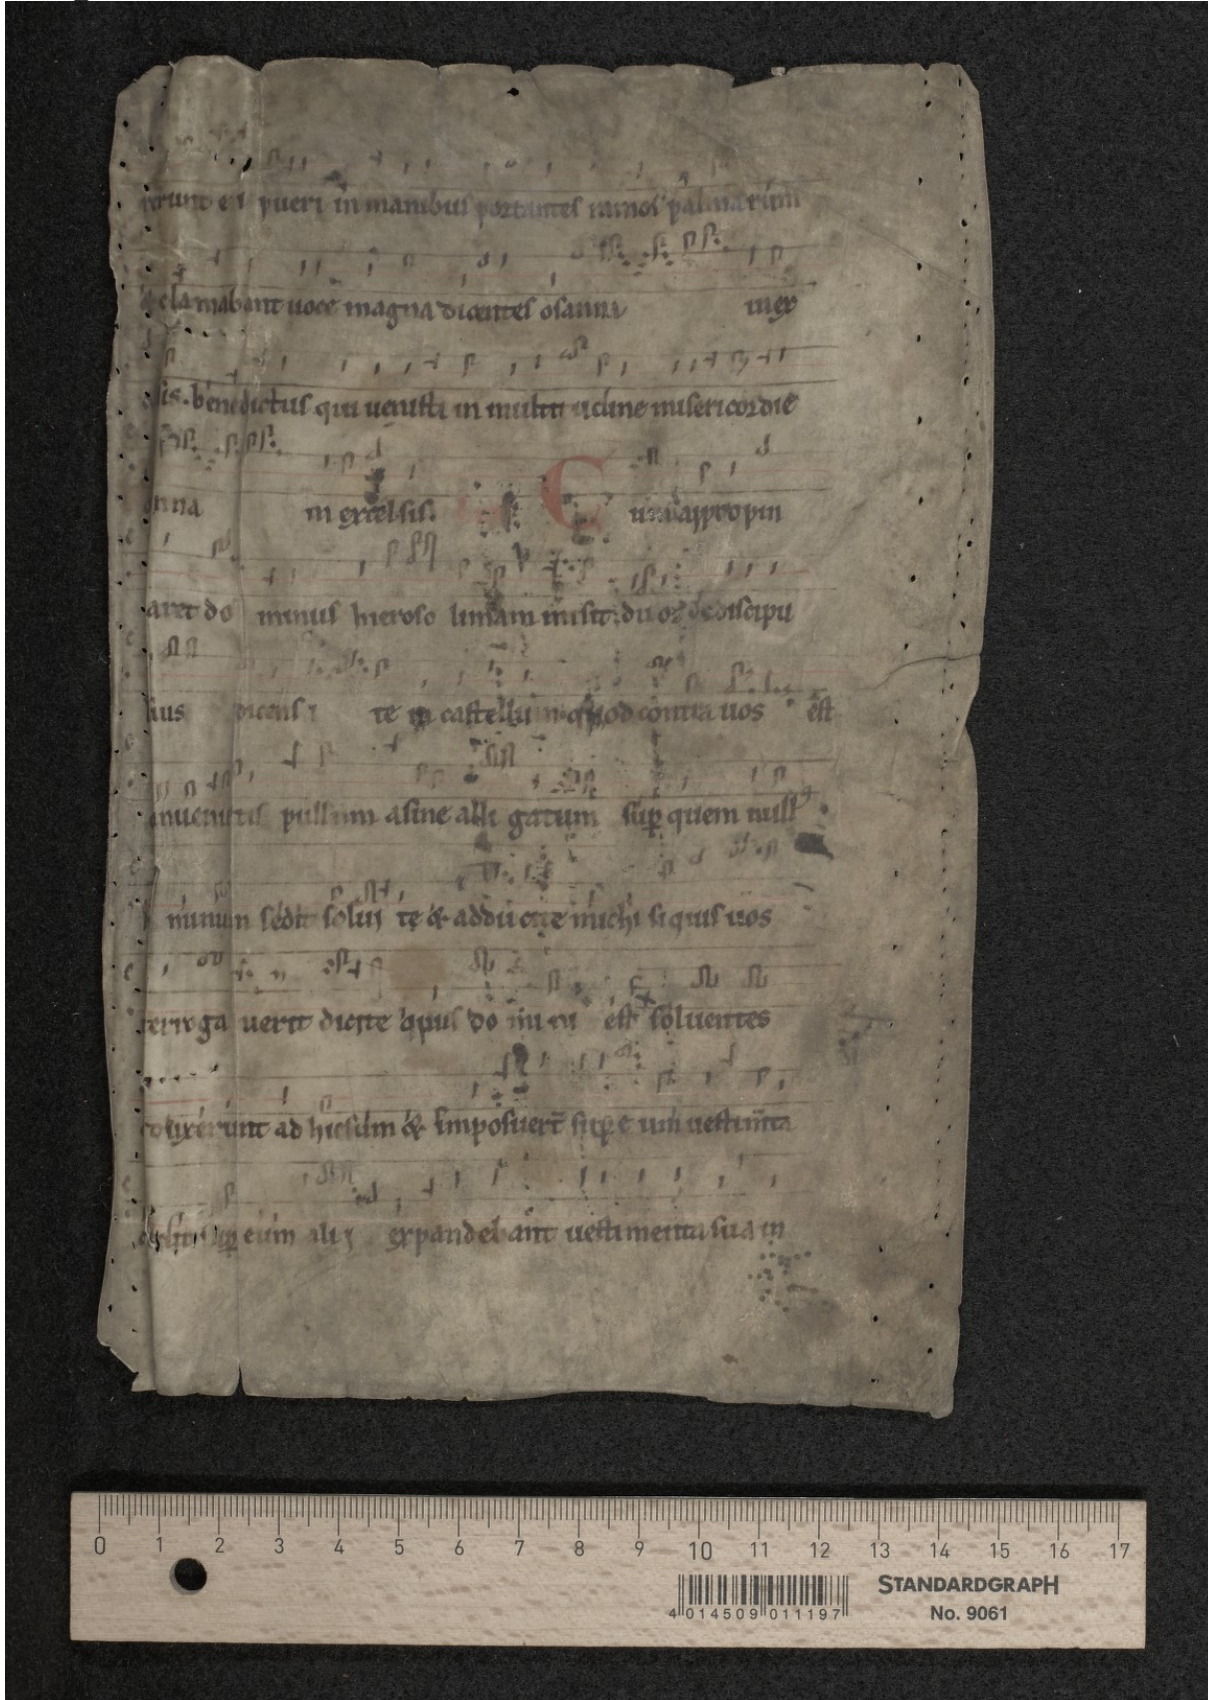 erunt ei pueri in manibus portantes ramos palmarum
& clamabant uoce magna dicentes osanna inex
sis. benedictus qui uenisti in multitudine misericordie
anna in excelsis. C um appropin
aret do minus hieroso limam misit duos de discipu
lius dicens i te in castellum quod contra uos est
inuenietis pullum asine alli gatum sup quem null
minum sedit solui te & adducite michi siquis uos
terroga uerit dicite opus do mi ni est soluentes
duxerunt ad hierslm & imposuert sup eum uestimta
sup eum alii expandebant uestimenta sua in
0 1 2 3 4 5 6 7 8 9 10 11 12 13 14 15 16 17
STANDARDGRAPH
4 014509 011197
No. 9061